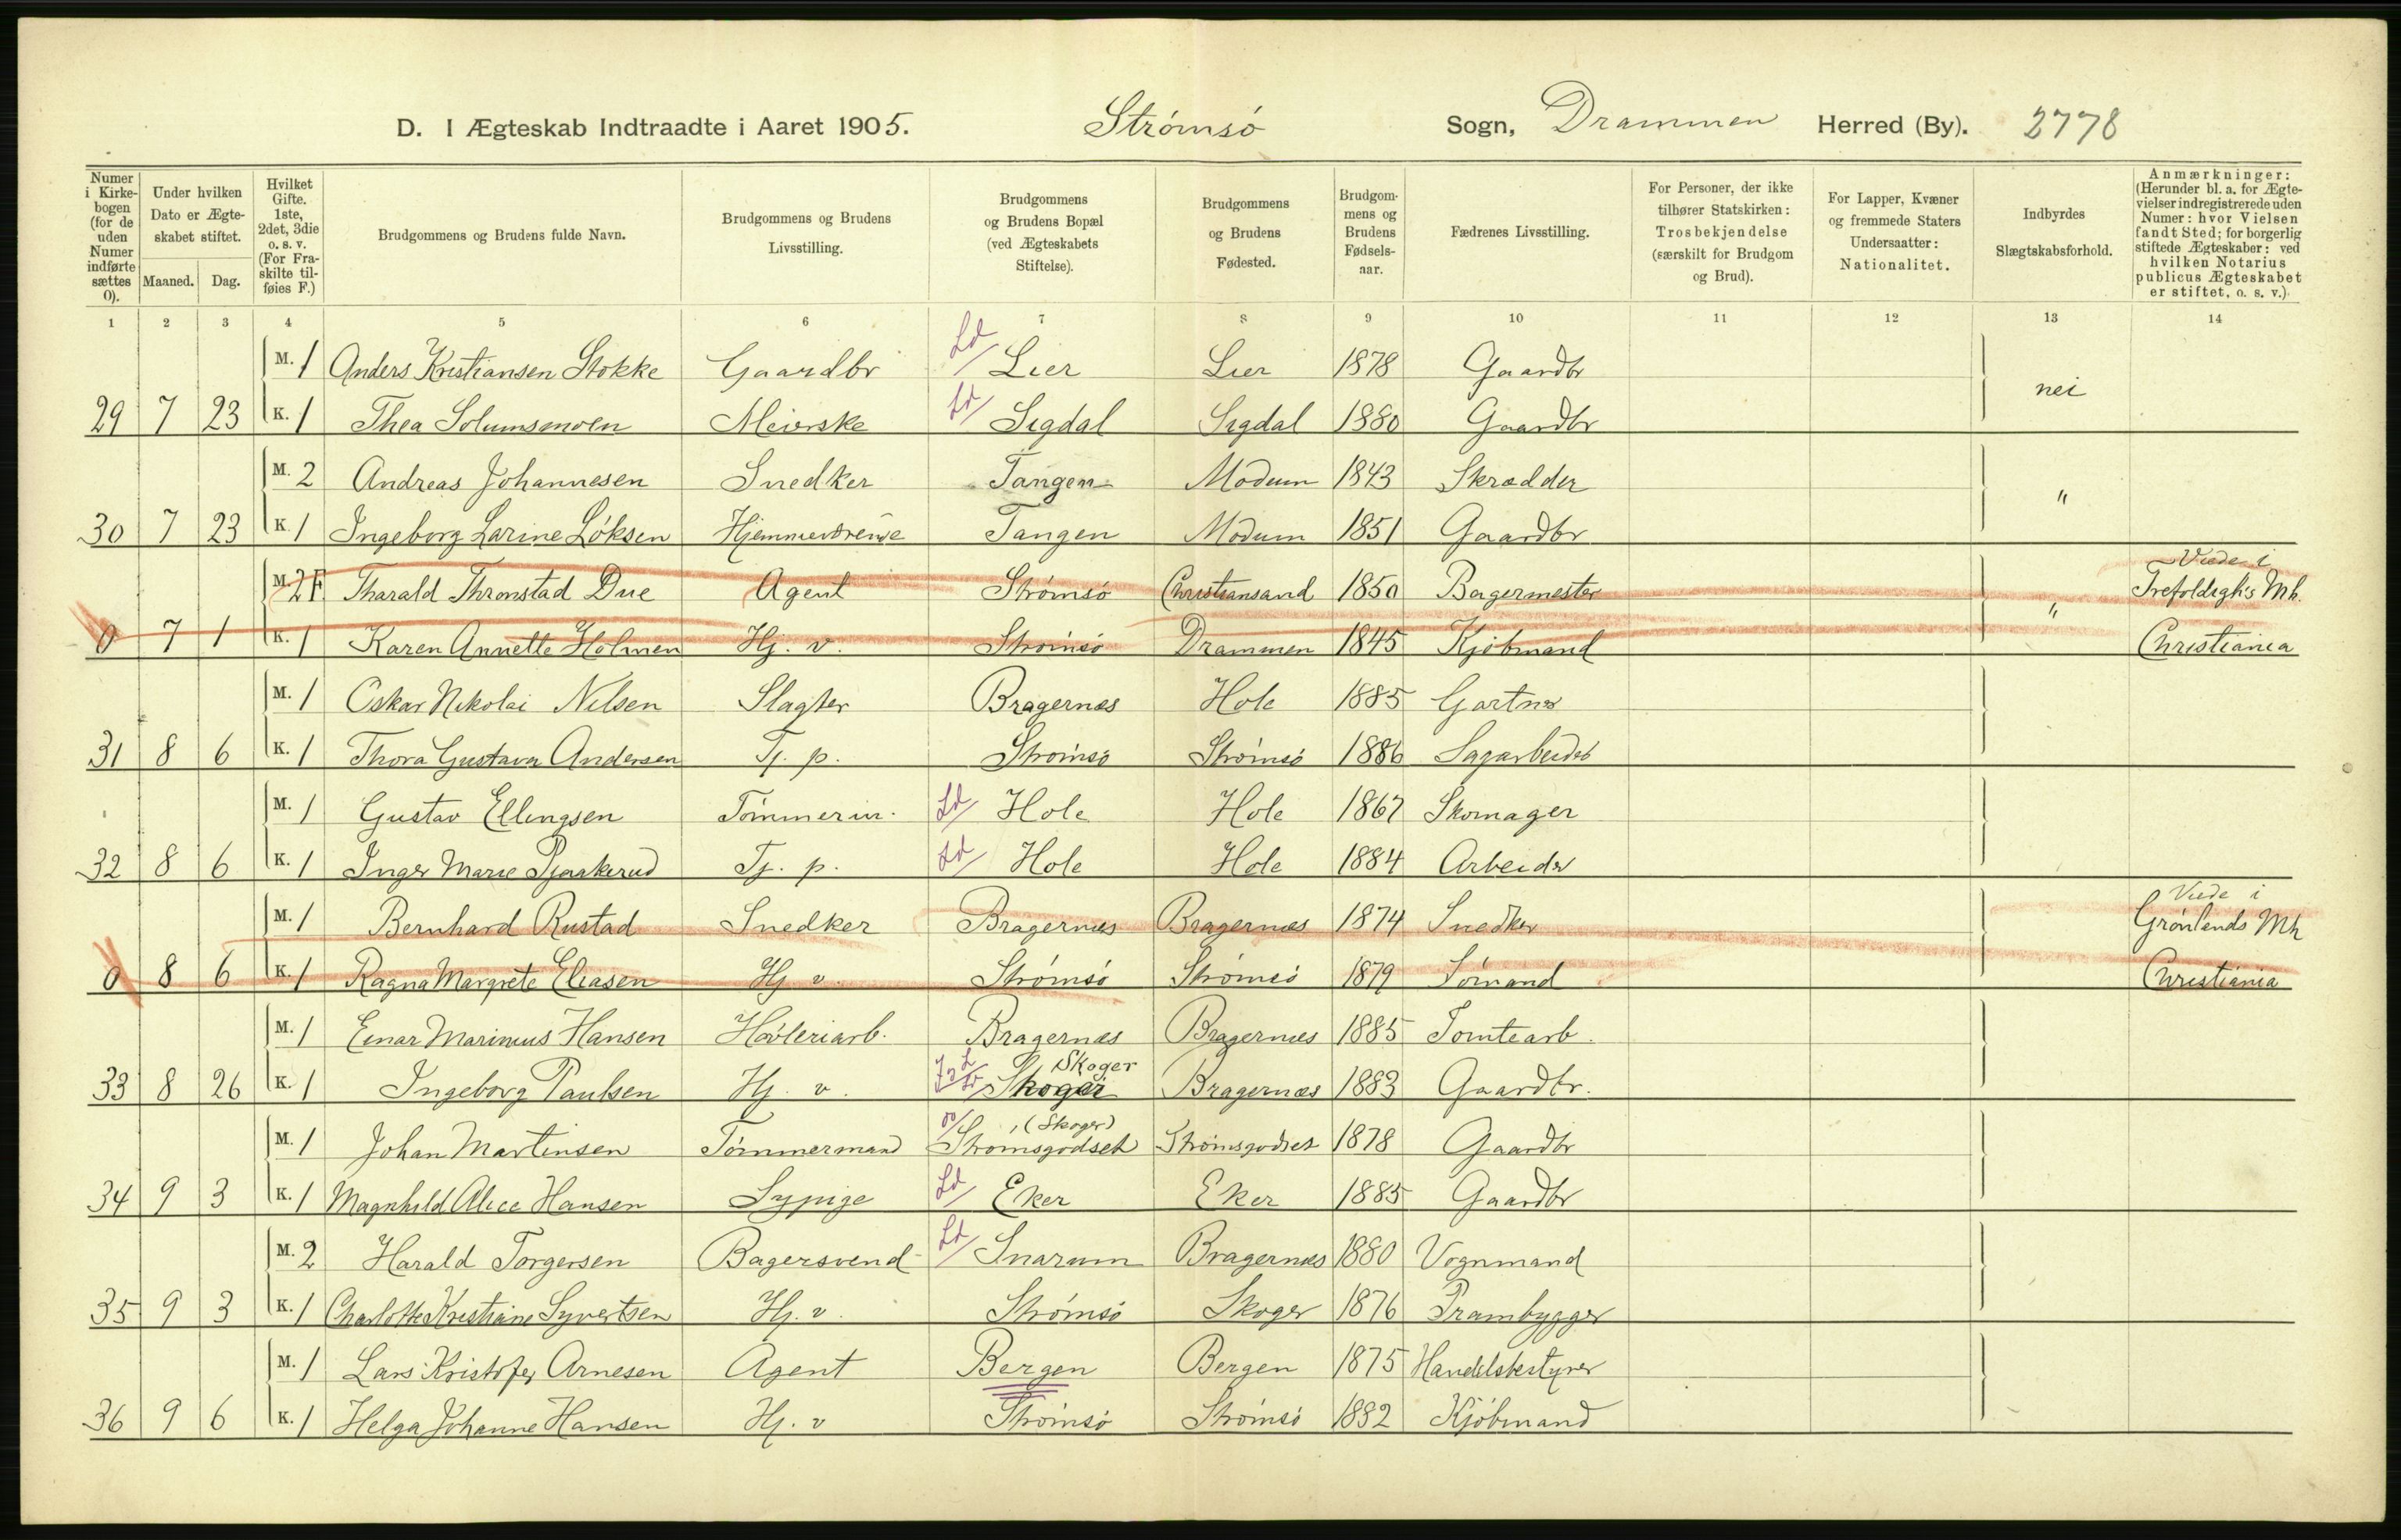 D. I Ægteskab Indtraadte i Aaret 1905. Strømsö Sogn, Drammen Herred (By). 2778
Numer i Kirkebogen (for de uden Numer indførte sættes 0).
Under hvilken Dato er Ægteskabet stiftet.
Maaned. Dag.
Hvilket Gifte. 1ste, 2det, 3die o. s. v. (For Fraskilte tilføies F.)
Brudgommens og Brudens fulde Navn.
Brudgommens og Brudens Livsstilling.
Brudgommens og Brudens Bopæl (ved Ægteskabets Stiftelse).
Brudgommens og Brudens Fødested.
Brudgommens og Brudens Fødselsaar.
Fædrenes Livsstilling.
For Personer, der ikke tilhører Statskirken: Trosbekjendelse (særskilt for Brudgom og Brud).
For Lapper, Kvæner og fremmede Staters Undersaatter: Nationalitet.
Indbyrdes Slægtskabsforhold.
Anmærkninger: (Herunder bl. a. for Ægtevielser indregistrerede uden Numer: hvor Vielsen fandt Sted; for borgerlig stiftede Ægteskaber: ved hvilken Notarius publicus Ægteskabet er stiftet, o. s. v.).
1 2 3 4 5 6 7 8 9 10 11 12 13 14
M. 1 Anders Kristiansen Stokke Gaardbr Ld Lier Lier 1878 Gaardbr
nei
29 7 23 K. 1 Thea Solumsmoen Meierske Ld Sigdal Sigdal 1880 Gaardbr
M. 2 Andreas Johannesen Snedker Tangen Modum 1843 Skrædder
"
30 7 23 K. 1 Ingeborg Larine Löksen Hjemmeværende Tangen Modum 1851 Gaardbr
Viede i
M. 2 F. Tharald Thronstad Due Agent Strømsö Christiansand 1850 Bagermester " Trefoldigh's Mh.
0 7 1 K. 1 Karen Annette Holmen Hj. v. Strömsö Drammen 1845 Kjöbmand Christiania
M. 1 Oskar Nikolai Nilsen Slagter Bragernæs Hole 1885 Gartner
31 8 6 K. 1 Thora Gustava Andersen Tj. p. Strömsö Strömsö 1886 Sagarbeider
M. 1 Gustav Ellingsen Tömmerm. Ld Hole Hole 1867 Skomager
32 8 6 K. 1 Inger Marie Tjaakerud Tj. p. Ld Hole Hole 1884 Arbeider
Viede i
M. 1 Bernhard Rustad Snedker Bragernæs Bragernæs 1874 Snedker Grönlands Mh
0 8 6 K. 1 Ragna Margrete Eliasen Hj. v. Strømsö Strömsö 1879 Sömand Christiania
M. 1 Einar Marinius Hansen Høvleriarb. Bragernæs Bragernæs 1885 Tomtearb.
Skoger
33 8 26 K. 1 Ingeborg Paulsen Hj. v. Skoger Bragernæs 1883 Gaardbr.
(Skoger)
M. 1 Johan Martinsen Tömmermand Strömsgodset Strömsgodset 1878 Gaardbr
34 9 3 K. 1 Magnhild Alice Hansen Sypige Ld Eker Eker 1885 Gaardbr
M. 2 Harald Torgersen Bagersvend Ld Snarum Bragernæs 1880 Vognmand
35 9 3 K. 1 Charlotte Kristiane Syvertsen Hj. v. Strömsö Skoger 1876 Prambygger
M. 1 Lars Kristofer Arnesen Agent Bergen Bergen 1875 Handelsbestyrer
36 9 6 K. 1 Helga Johanne Hansen Hj. v Strömsö Strömsö 1882 Kjöbmand